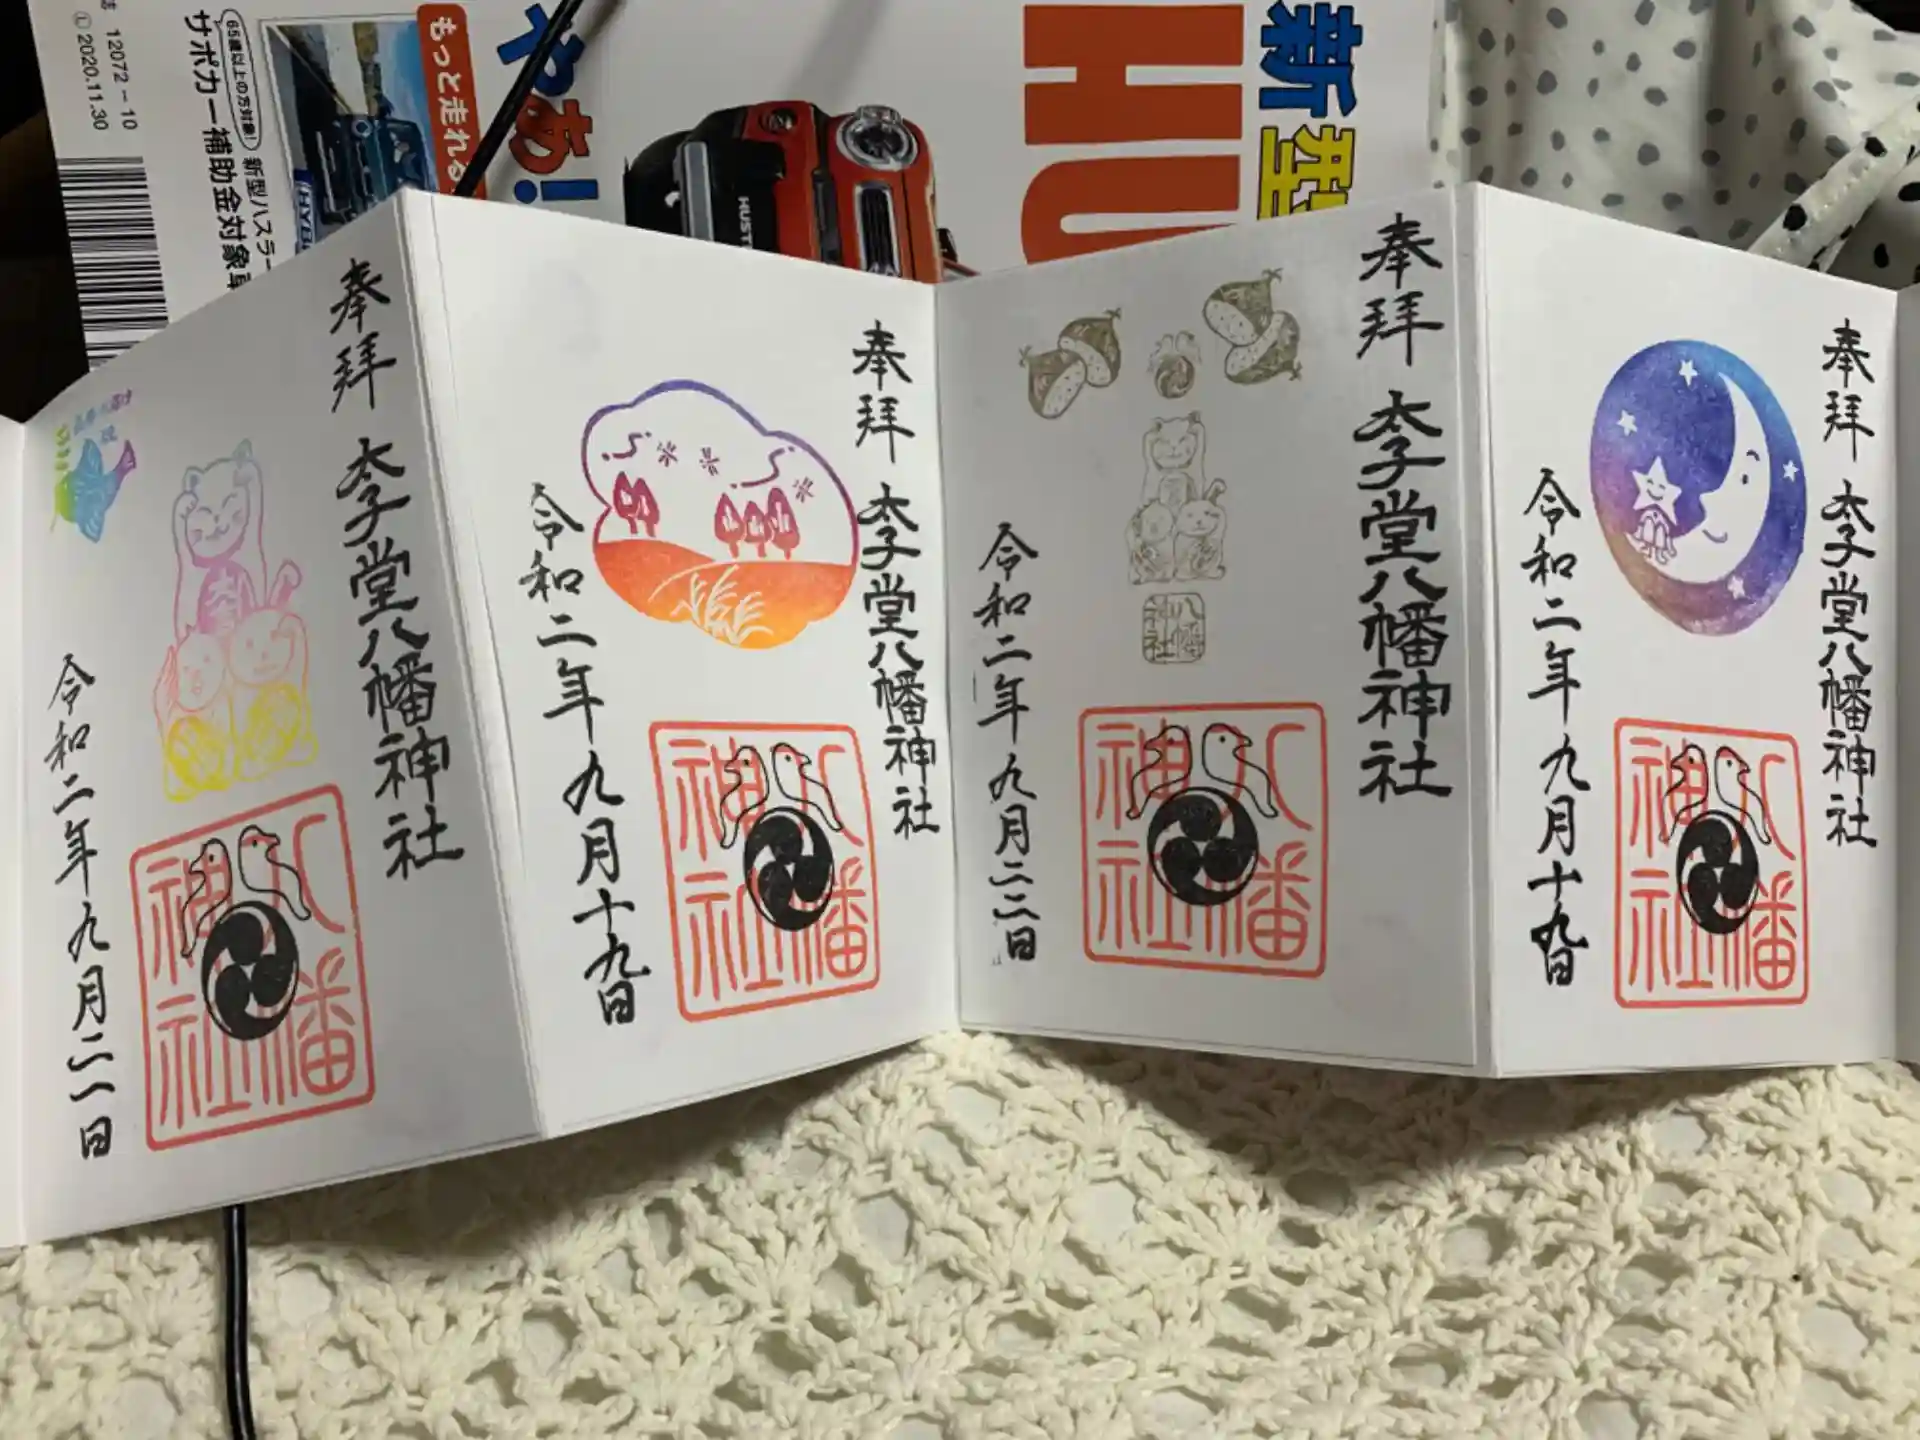 12072-10
Ⓛ2020.11.30
65歳以上の方対象!
新型ハスラー
サポカー補助金対象車
もっと走れる
やぁ!
HUST
新型
HU
奉拝
太子堂八幡神社
令和二年九月二一日
八幡神社
奉拝
太子堂八幡神社
令和二年九月十九日
八幡神社
奉拝
太子堂八幡神社
令和二年九月二二日
八幡神社
八幡神社
奉拝
太子堂八幡神社
令和二年九月十九日
八幡神社